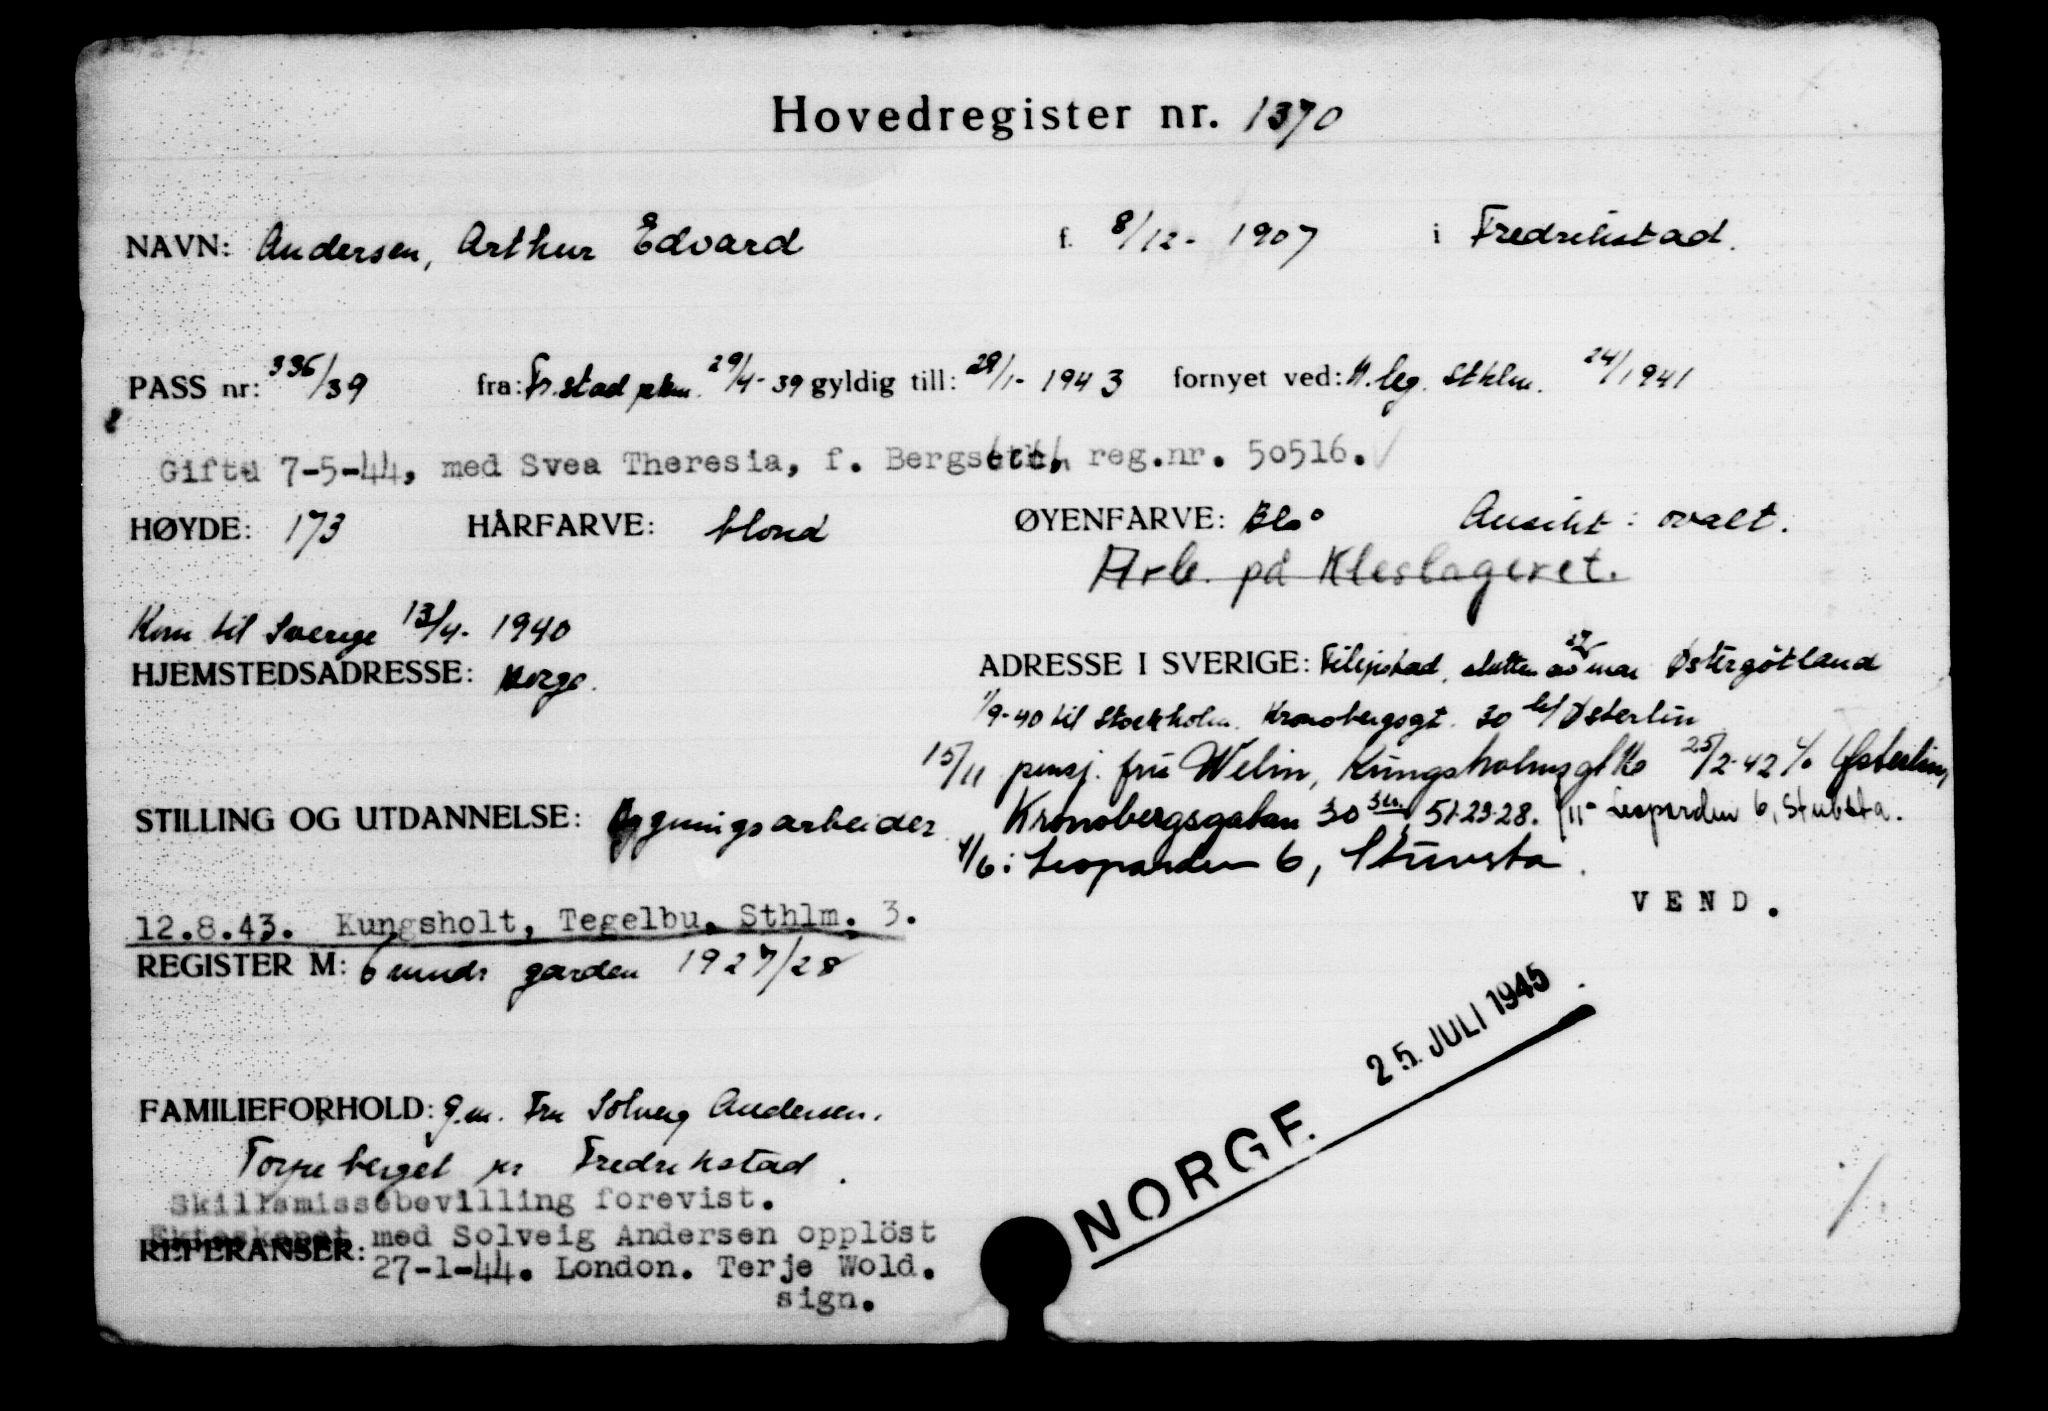 Hovedregister nr. 1370
NAVN: Andersen, Arthur Edvard f. 8/12- 1907 i Fredrikstad.
PASS nr: 336/39 fra: Fr.stad pkm. 29/4- 39 gyldig till: 29/1- 1943 fornyet ved: N. leg. Sthlm. 24/1 1941
Gift 7-5-44, med Svea Theresia, f. reg.nr. 50516.
HØYDE: 173 HÅRFARVE: blond ØYENFARVE: Blå Ansikt: ovalt.
Arb. på Kleslageret.
Kom til Sverige 13/4- 1940
HJEMSTEDSADRESSE: Norge. ADRESSE I SVERIGE: Filipstad, slutten av mai Østergötland
1/9-40 til Stockholm. Kronobergsgt. 30 b/ Østerlin
15/11 pensj. fru Welin, Kungsholmsgt 25/2-42 c/o Østerling
STILLING OG UTDANNELSE: Bygningsarbeider Kronobergsgatan 30 51-23-28. Leoparden 6, Stubsta.
1/6: Leoparden 6, Stuvsta.
VEND.
12.8.43. Kungsholt, Tegelbu, Sthlm. 3.
REGISTER M: 6 mndr garden 1927/28
25. JULI 1945
NORGE
FAMILIEFORHOLD: g.m. Fru Solveig Andersen.
Torpeberget pr Fredrikstad.
Skillsmissebevilling forevist.
Ekteskapet med Solveig Andersen opplöst
REFERANSER: 27-1-44. London. Terje Wold.
sign.